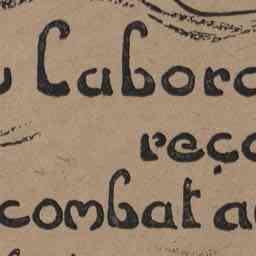 u Labor
reç
combat a